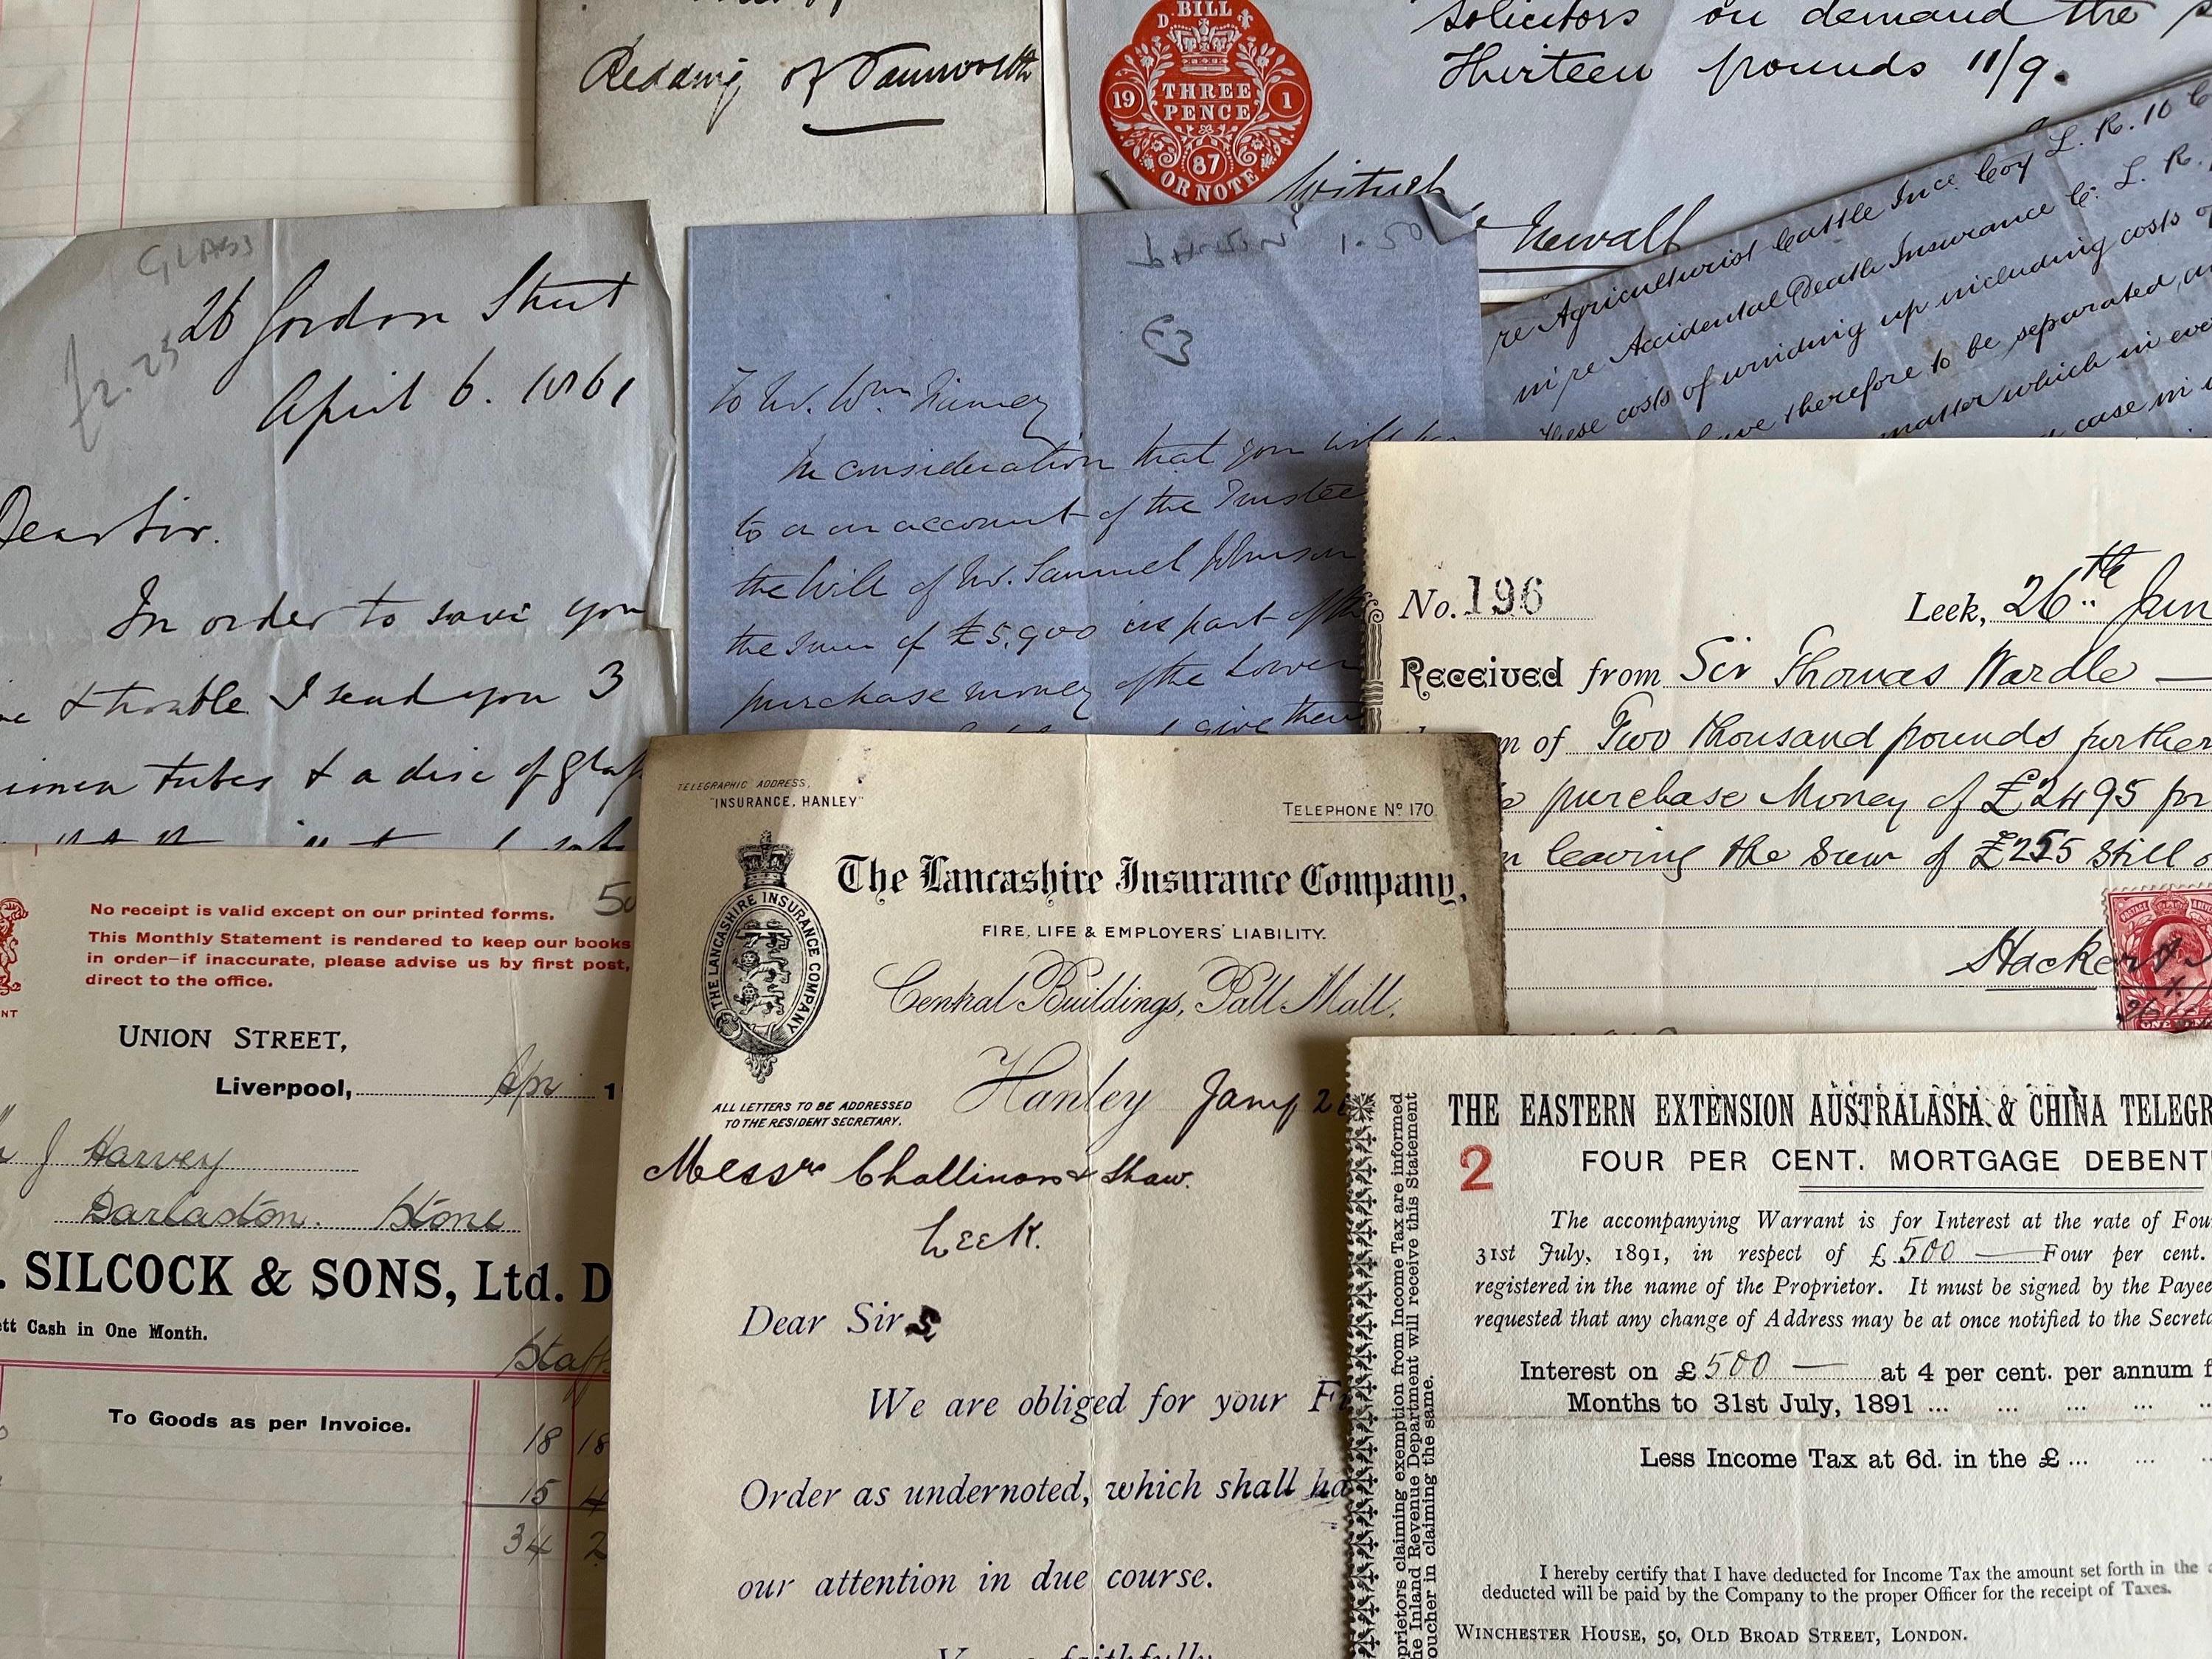 Redding of Tamworth
BILL
THREE
PENCE
19 1
87
OR NOTE
solicitors on demand the
Thirteen pounds 11/9.
Witness
Newall
re Agriculturist Cattle Ince Coy L. R. 10
in re Accidental Death Insurance Co. L. R.
These costs of winding up including costs of
have therefore to be separated
matter which in
case in
GLASS
£2.25
26 Gordon Street
April 6. 1861
Dear Sir.
In order to save you
& trouble I send you 3
tubes & a disc of glass
1.50
£3
To Mr. Wm
In consideration that you will
to a an account of the Trustee
the Will of Mr. Samuel Johnson
the sum of £5,900 as part of the
purchase money of the Lower
give them
No. 196
Leek, 26th Jan
Received from Sir Thomas Wardle
of Two thousand pounds further
purchase Money of £2495 for
leaving the sum of £255 still
TELEGRAPHIC ADDRESS,
"INSURANCE, HANLEY"
TELEPHONE No. 170
The Lancashire Insurance Company,
THE LANCASHIRE INSURANCE COMPANY
FIRE, LIFE & EMPLOYERS' LIABILITY.
Central Buildings, Pall Mall,
Hanley Jany 2
ALL LETTERS TO BE ADDRESSED
TO THE RESIDENT SECRETARY.
Messrs Challinors & Shaw.
Leek.
Dear Sirs
We are obliged for your
Order as undernoted, which shall ha
our attention in due course.
Yours faithfully
50
No receipt is valid except on our printed forms.
This Monthly Statement is rendered to keep our books
in order—if inaccurate, please advise us by first post,
direct to the office.
UNION STREET,
Liverpool, Apr 1
J Harvey
Darlaston. Stone
SILCOCK & SONS, Ltd. D
Cash in One Month.
Staffs
To Goods as per Invoice.
18 18
15 4
34 2
THE EASTERN EXTENSION AUSTRALASIA & CHINA TELEGR
2
FOUR PER CENT. MORTGAGE DEBENT
The accompanying Warrant is for Interest at the rate of Fou
31st July, 1891, in respect of £ 500 Four per cent.
registered in the name of the Proprietor. It must be signed by the Payee
requested that any change of Address may be at once notified to the Secreta
Interest on £ 500 at 4 per cent. per annum f
Months to 31st July, 1891 ... ... ... ...
Less Income Tax at 6d. in the £ ... ...
I hereby certify that I have deducted for Income Tax the amount set forth in the
deducted will be paid by the Company to the proper Officer for the receipt of Taxes.
WINCHESTER HOUSE, 50, OLD BROAD STREET, LONDON.
prietors claiming exemption from Income Tax are informed
he Inland Revenue Department will receive this Statement
oucher in claiming the same.